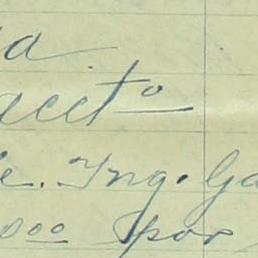 a
accto
e. Ing. Ga
000 por